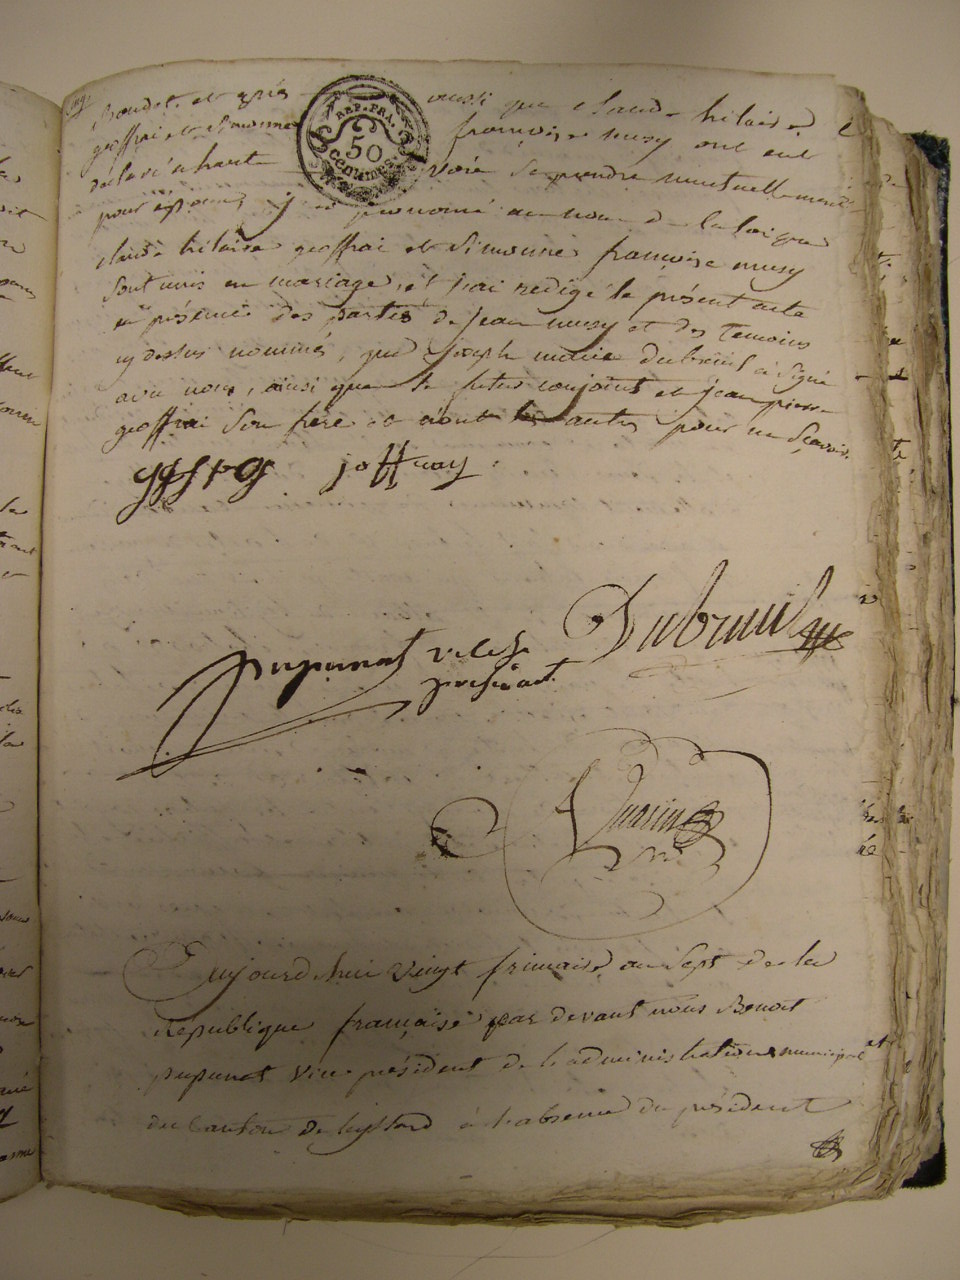 Baudet. et après aussi que claude hilaire
geoffrai et simonne françoise musy ont eut
déclaré a haute voix se prendre mutuellement
pour épouse, j'ai prononcé au nom de la loi que
claude hilaire geoffrai et Simonne françoise musy
sont unis en mariage, et j'ai redigé le présent acte
en présence des parties de Jean musy et des Temoins
cy dessus nommés, que joseph marie dubreuil a signé
avec nous, ainsi que le futur conjoint et jean pierre
geoffrai son frère et nont les autres pour ne sçavoir.
joffray
REP. FRA.
50
centimes
pupunat vice Dubreuil
président
Aujourdhui vingt frimaire an sept de la
Republique française par devant nous Benoit
pupunat vice président de l'administration municipal
du Canton de en l'absence du président